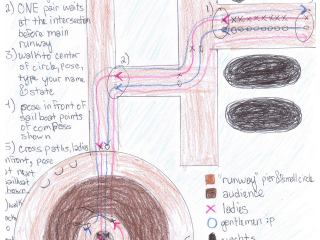 2) ONE pair waits
at the intersection
before main
runway
3) walk to center
of circle, pose,
type your name
& state
4) pose in front of
sailboat points
of compass
shown
5) cross paths, ladies
in front, pose
at next
sailboat
1)
2)
"runway" pier & small circle
audience
ladies
gentlemen :p
yachts